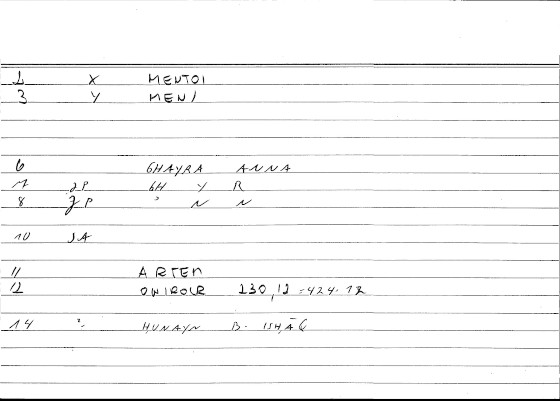 1 X MENTOI
3 Y MENI
6 GHAYRA ANNA
7 JP GH Y R
8 JP " N N
10 JA
11 ARTEM
12 ONIROCR 230,12 = 424.12
14 " HUNAYN B. ISḤĀQ